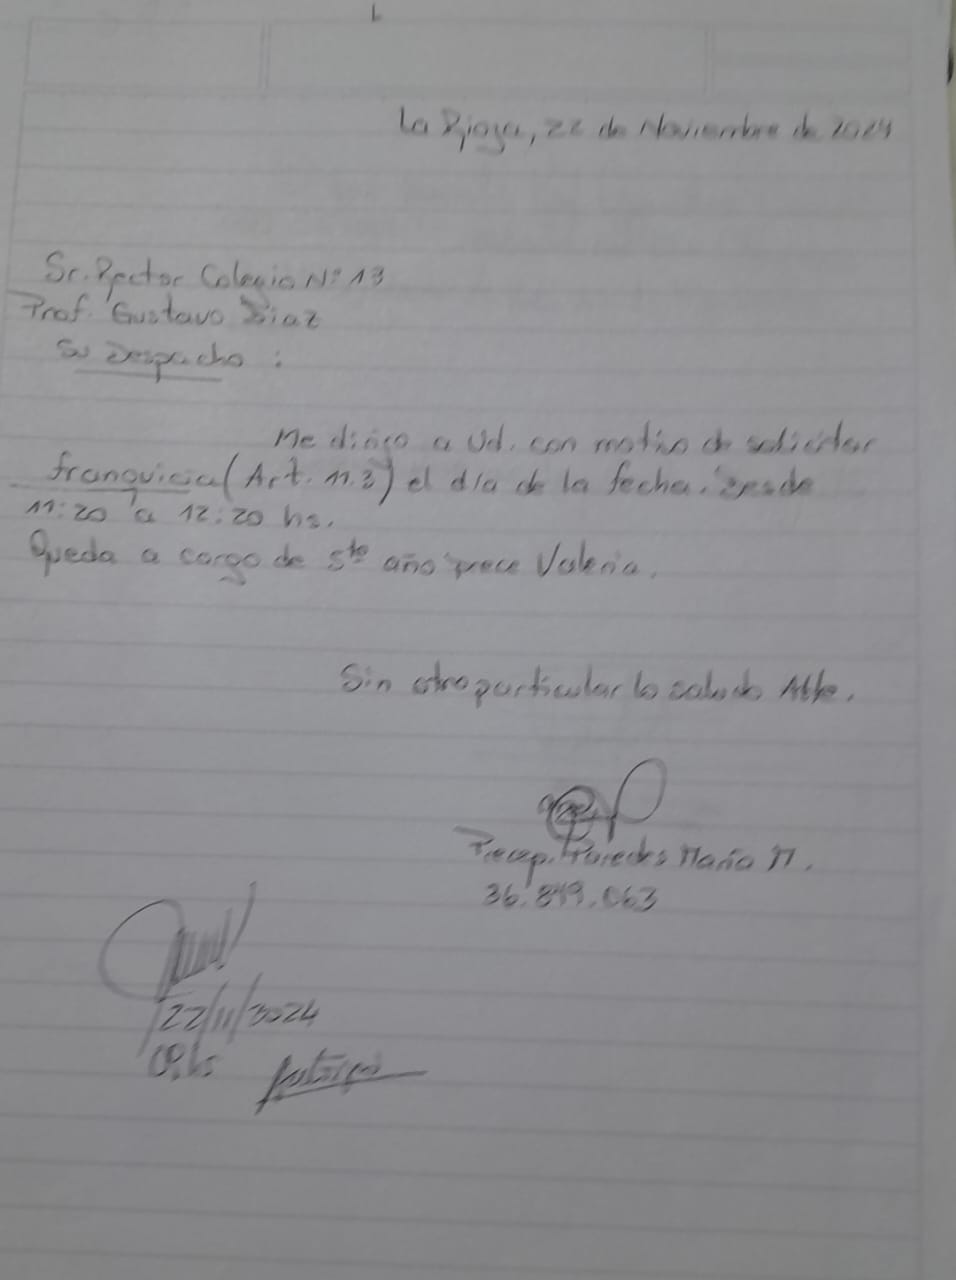 La Rioja, 22 de Noviembre de 2024
Sr. Rector Colegio N° 13
Prof. Gustavo Diaz
Su Despacho :
Me dirijo a Ud. con motivo de solicitar
franquicia (Art. 11.3) el día de la fecha. Desde
11:20 a 12:20 hs.
Queda a cargo de 5to año prece Valeria.
Sin otro particular lo saludo Atte.
Precep. Paredes María M.
36.849.063
22/11/2024